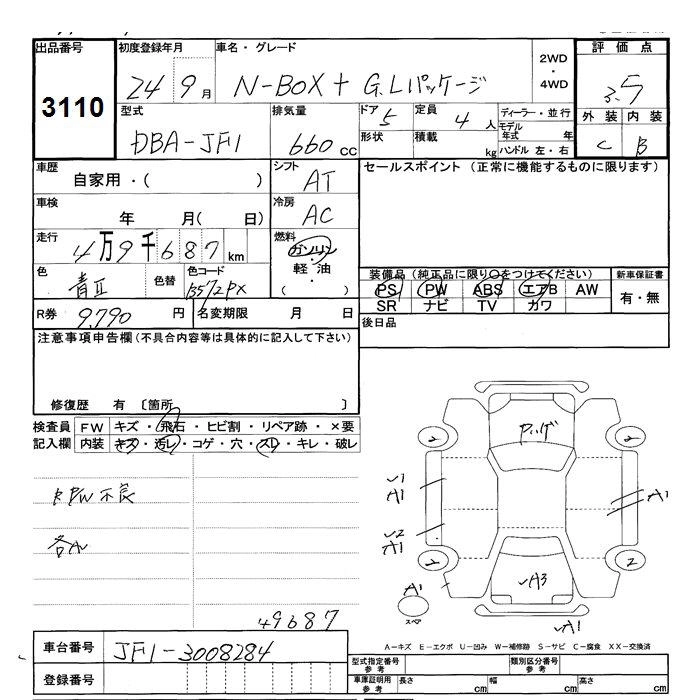 出品番号 初度登録年月 車名・グレード 2WD・4WD 評価点
3110 24 9月 N-BOX+ G.Lパッケージ 3.5
型式 排気量 ドア 定員 ディーラー・並行 外装 内装
DBA-JF1 660cc 5 4人 モデル年式 年 C B
形状 積載 kg ハンドル 左・右
車歴 シフト セールスポイント (正常に機能するものに限ります)
自家用・( ) AT
車検 冷房
年 月( 日) AC
走行 燃料
4万9千687km ガソリン・軽油・( )
色 色替 色コード 装備品 (純正品に限り○をつけてください) 新車保証書
青Ⅱ PS PW ABS エアB AW 有・無
SR ナビ TV カワ
R券 9,790円 名変期限 月 日 後日品
注意事項申告欄 (不具合内容等は具体的に記入して下さい)
修復歴 有 〔箇所 〕
検査員 FW キズ・飛石・ヒビ割・リペア跡・×要
記入欄 内装 キズ・汚レ・コゲ・穴・スレ・キレ・破レ
PW不良
49687
√1
A1
√2
A1
A1
2
√A3
A1
スペア
√A1
A-キズ E-エクボ U-凹み W-補修跡 S-サビ C-腐食 XX-交換済
車台番号 JF1-3008284
登録番号
型式指定番号 参考 類別区分番号 参考
車庫証明用 参考 長さ cm 幅 cm 高さ cm